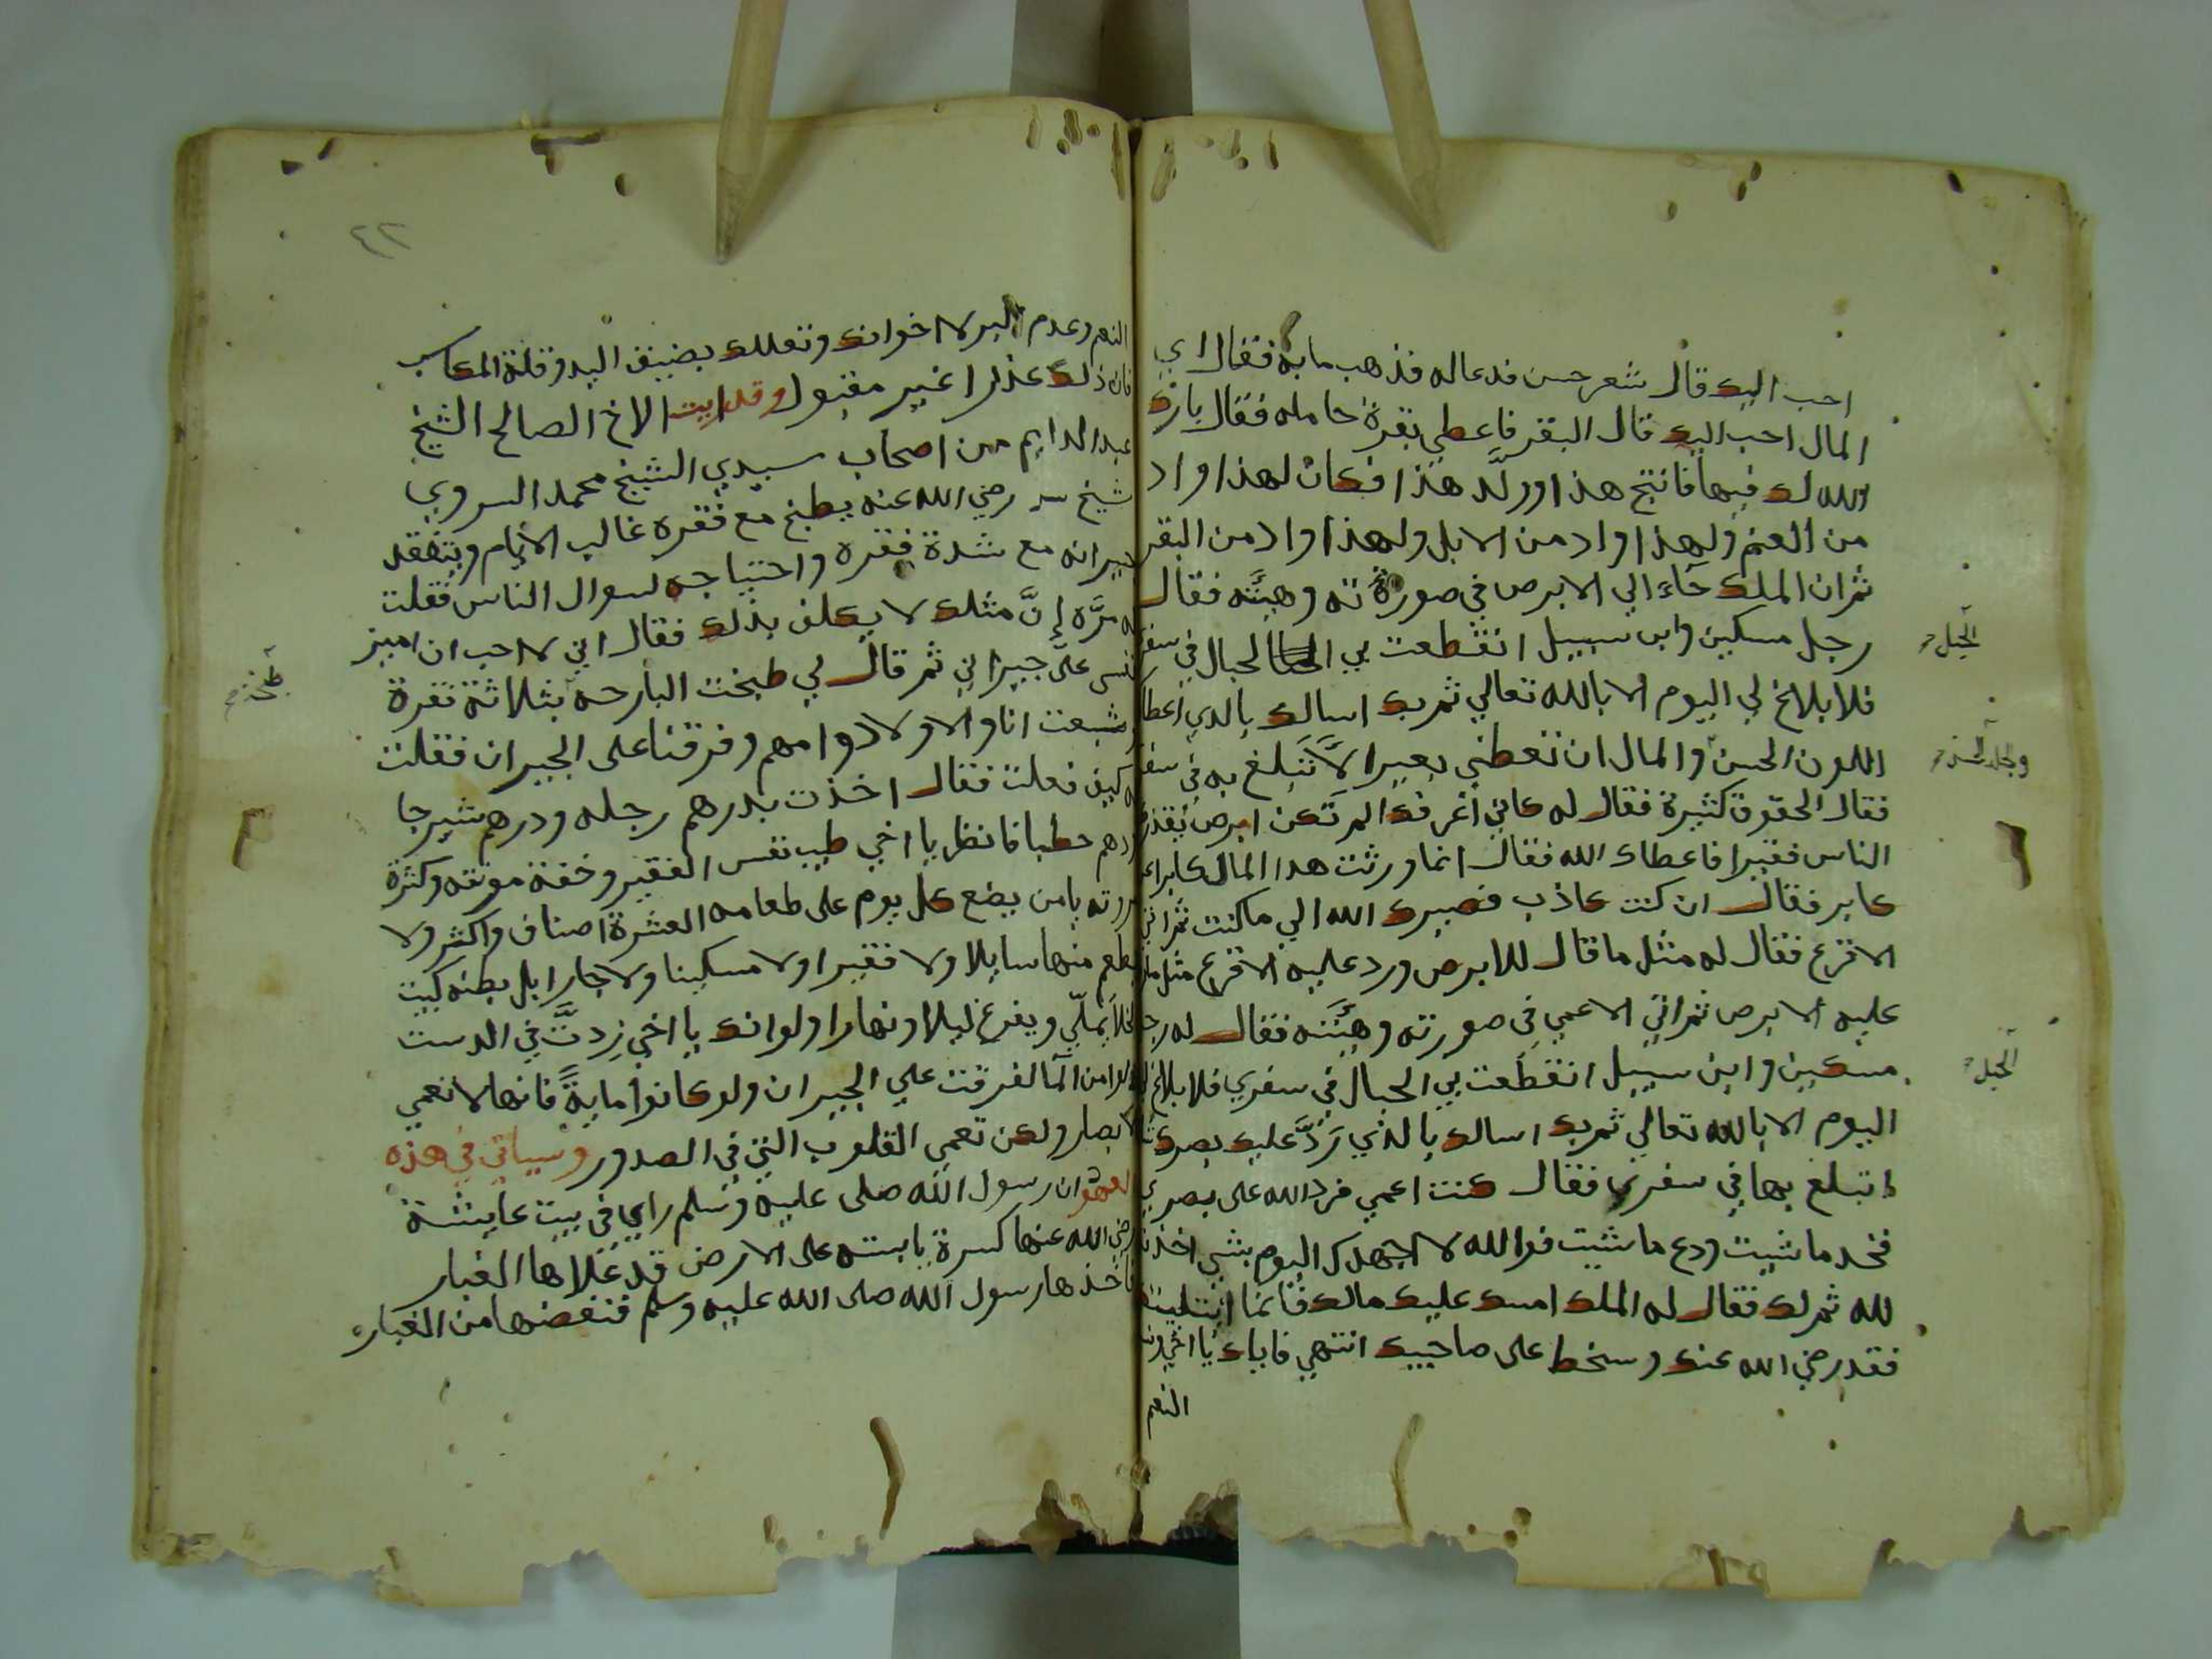 احب اليك قال شعر حسن فدعا له فذهب ما به فقال اي
المال احب اليك قال البقر فاعطي بقرة حامله فقال بارك
الله لك فيها فانتج هذا وولَّد هذا فكان لهذا واد
من الغنم ولهذا واد من الابل ولهذا واد من البقر
ثم ان الملك جاء الي الابرص في صورته وهيئته فقال
رجل مسكين وابن سبيل انقطعت بي الحبال في سفري
فلا بلاغ لي اليوم الا بالله تعالي ثم بك اسالك بالذي اعطاك
اللون الحسن والمال ان تعطني بعيرا لاَ تَبلغ به في سفري
فقال الحقوق كثيرة فقال له كاني اعرفك الم تكن ابرص يقذرك
الناس فقيرا فاعطاك الله فقال انما ورثت هدا المال كابرا عن
كابر فقال ان كنت كاذب فصيرك الله الي ما كنت ثم اتي
الاقرع فقال له مثل ما قال للابرص ورد عليه الاقرع مثل ما رد
عليه الابرص ثم اتي الاعمي في صورته وهيئته فقال له رجل
مسكين وابن سبيل انقطعت بي الحبال في سفري فلا بلاغ لي
اليوم الا بالله تعالي ثم بك اسالك بالذي رَدَّ عليك بصرك
اتبلغ بها في سفري فقال كنت اعمي فرد الله على بصري
فخد ما شيت ودع ما شيت فوالله لا اجهدك اليوم بشي اخذته
لله ثم لك فقال له الملك امسك عليك مالك فانما ابتليتم
فقد رضي الله عنك وسخط على صاحبيك انتهي فاياك يا اخي
النعم
الحبل
والجلد الحسن
الحبل
٤٢
النعم وعدم البر لاخوانك وتعللك بضيق اليد وقلة المكاسب
فان ذلك عذرا غير مقبول وقد رايت الاخ الصالح الشيخ
عبد الدايم من اصحاب سيدي الشيخ محمد السروي
شيخ رضي الله عنه يطبخ مع فقره غالب الايام ويتفقد
جيرانه مع شدة فقره واحتياجه لسوال الناس فقلت
له مرَّه إنَّ مثلك لا يكلف بذلك فقال اني لا احب ان اميز
نفسي علَي جيراني ثم قال لي طبخت البارحه بثلاثة نقرة
وشبعت انا والاولاد وامهم وفرقنا على الجيران فقلت
له كيف فعلت فقال اخذت بدرهم رجله ودرهم شيرجا
ودرهم حطبا فانظر يا اخي طيب نفس الفقير وخفة مونته وكثرة
يا من يضع كل يوم على طعامه العشرة اصناف واكثر ولا
يطعم منها سايلا ولا فقيرا ولا مسكينا ولا جارا بل بطنه كبيت
الخلا يملّي ويفرغ ليلا ونهارا ولو انك يا اخي زدتَّ في الدست
من المآ لفرقت علي الجيران ولو كانوا مايةً فانها لا تعمي
الابصار ولكن تعمي القلوب التي في الصدور وسياتي في هذه
العهود ان رسول الله صلى عليه وسلم راي في بيت عايشة
رضي الله عنها كسرة يابسه على الارض قد علاها الغبار
فاخذها رسول الله صلى الله عليه وسلم فنفضها من الغبار